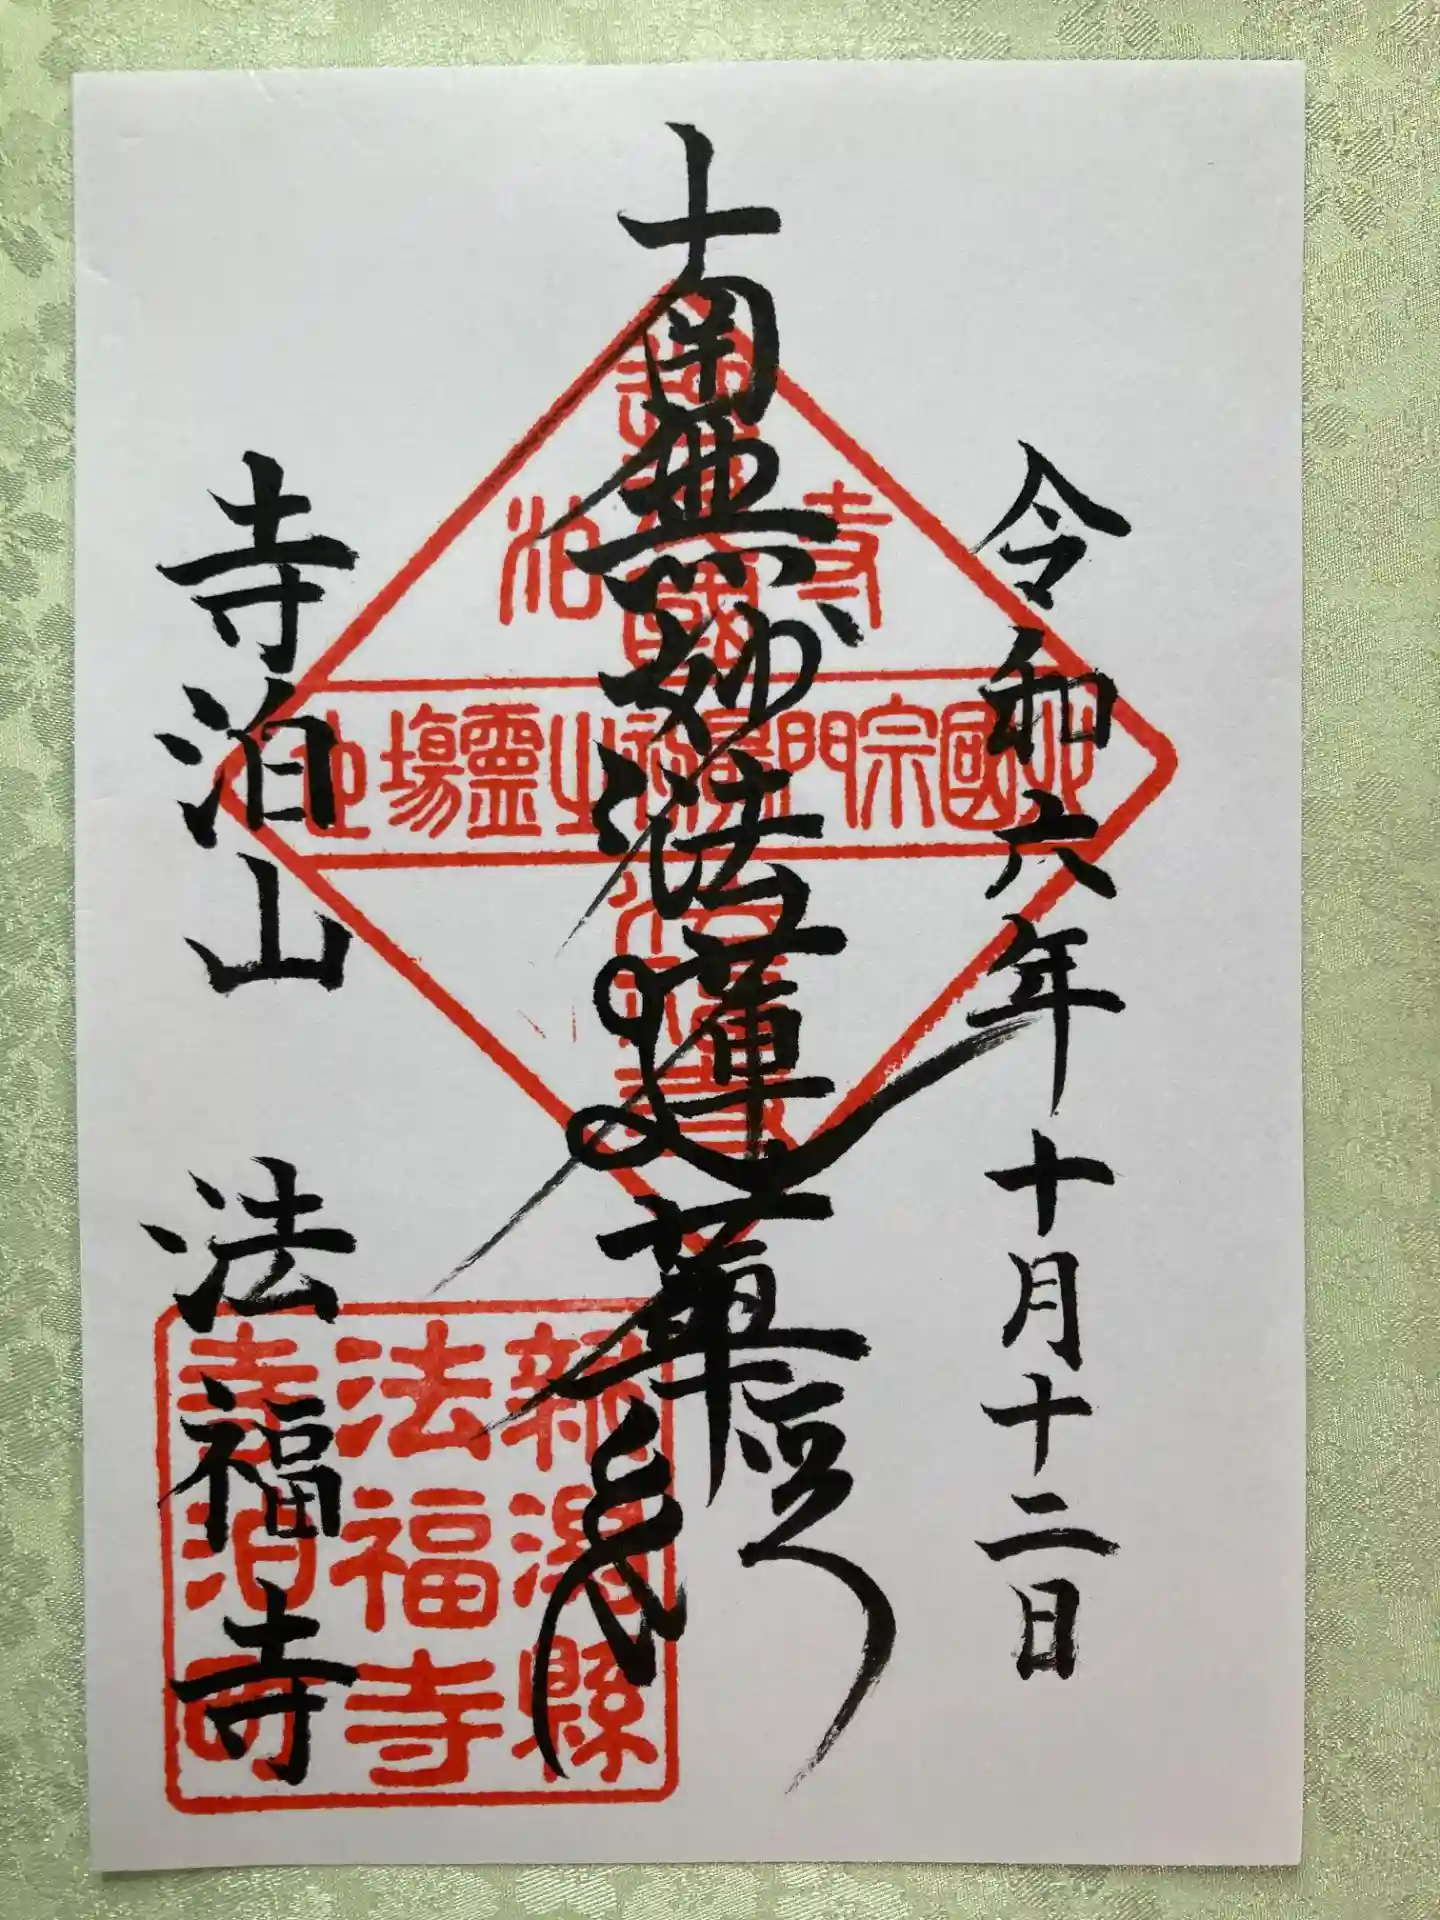 令和六年十月十二日
南無妙法蓮華経
寺泊山 法福寺
寺泊
北國宗門最初之靈場地
法福寺
新潟縣
法福寺
寺泊町